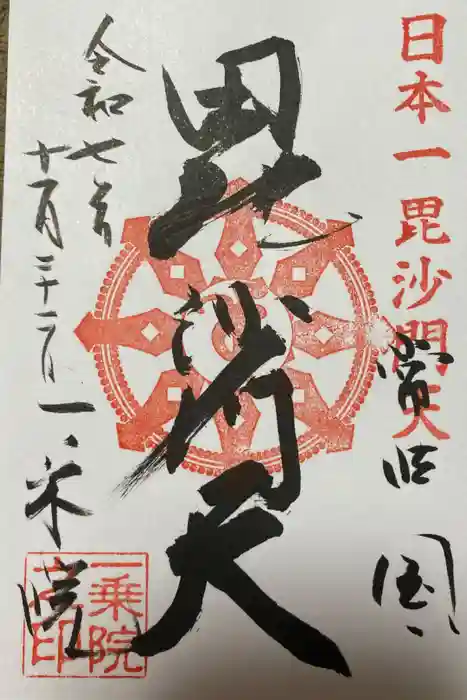 日本一毘沙門天
国
毘沙門天
令和七年
十月
一乗院
一乗院
之印